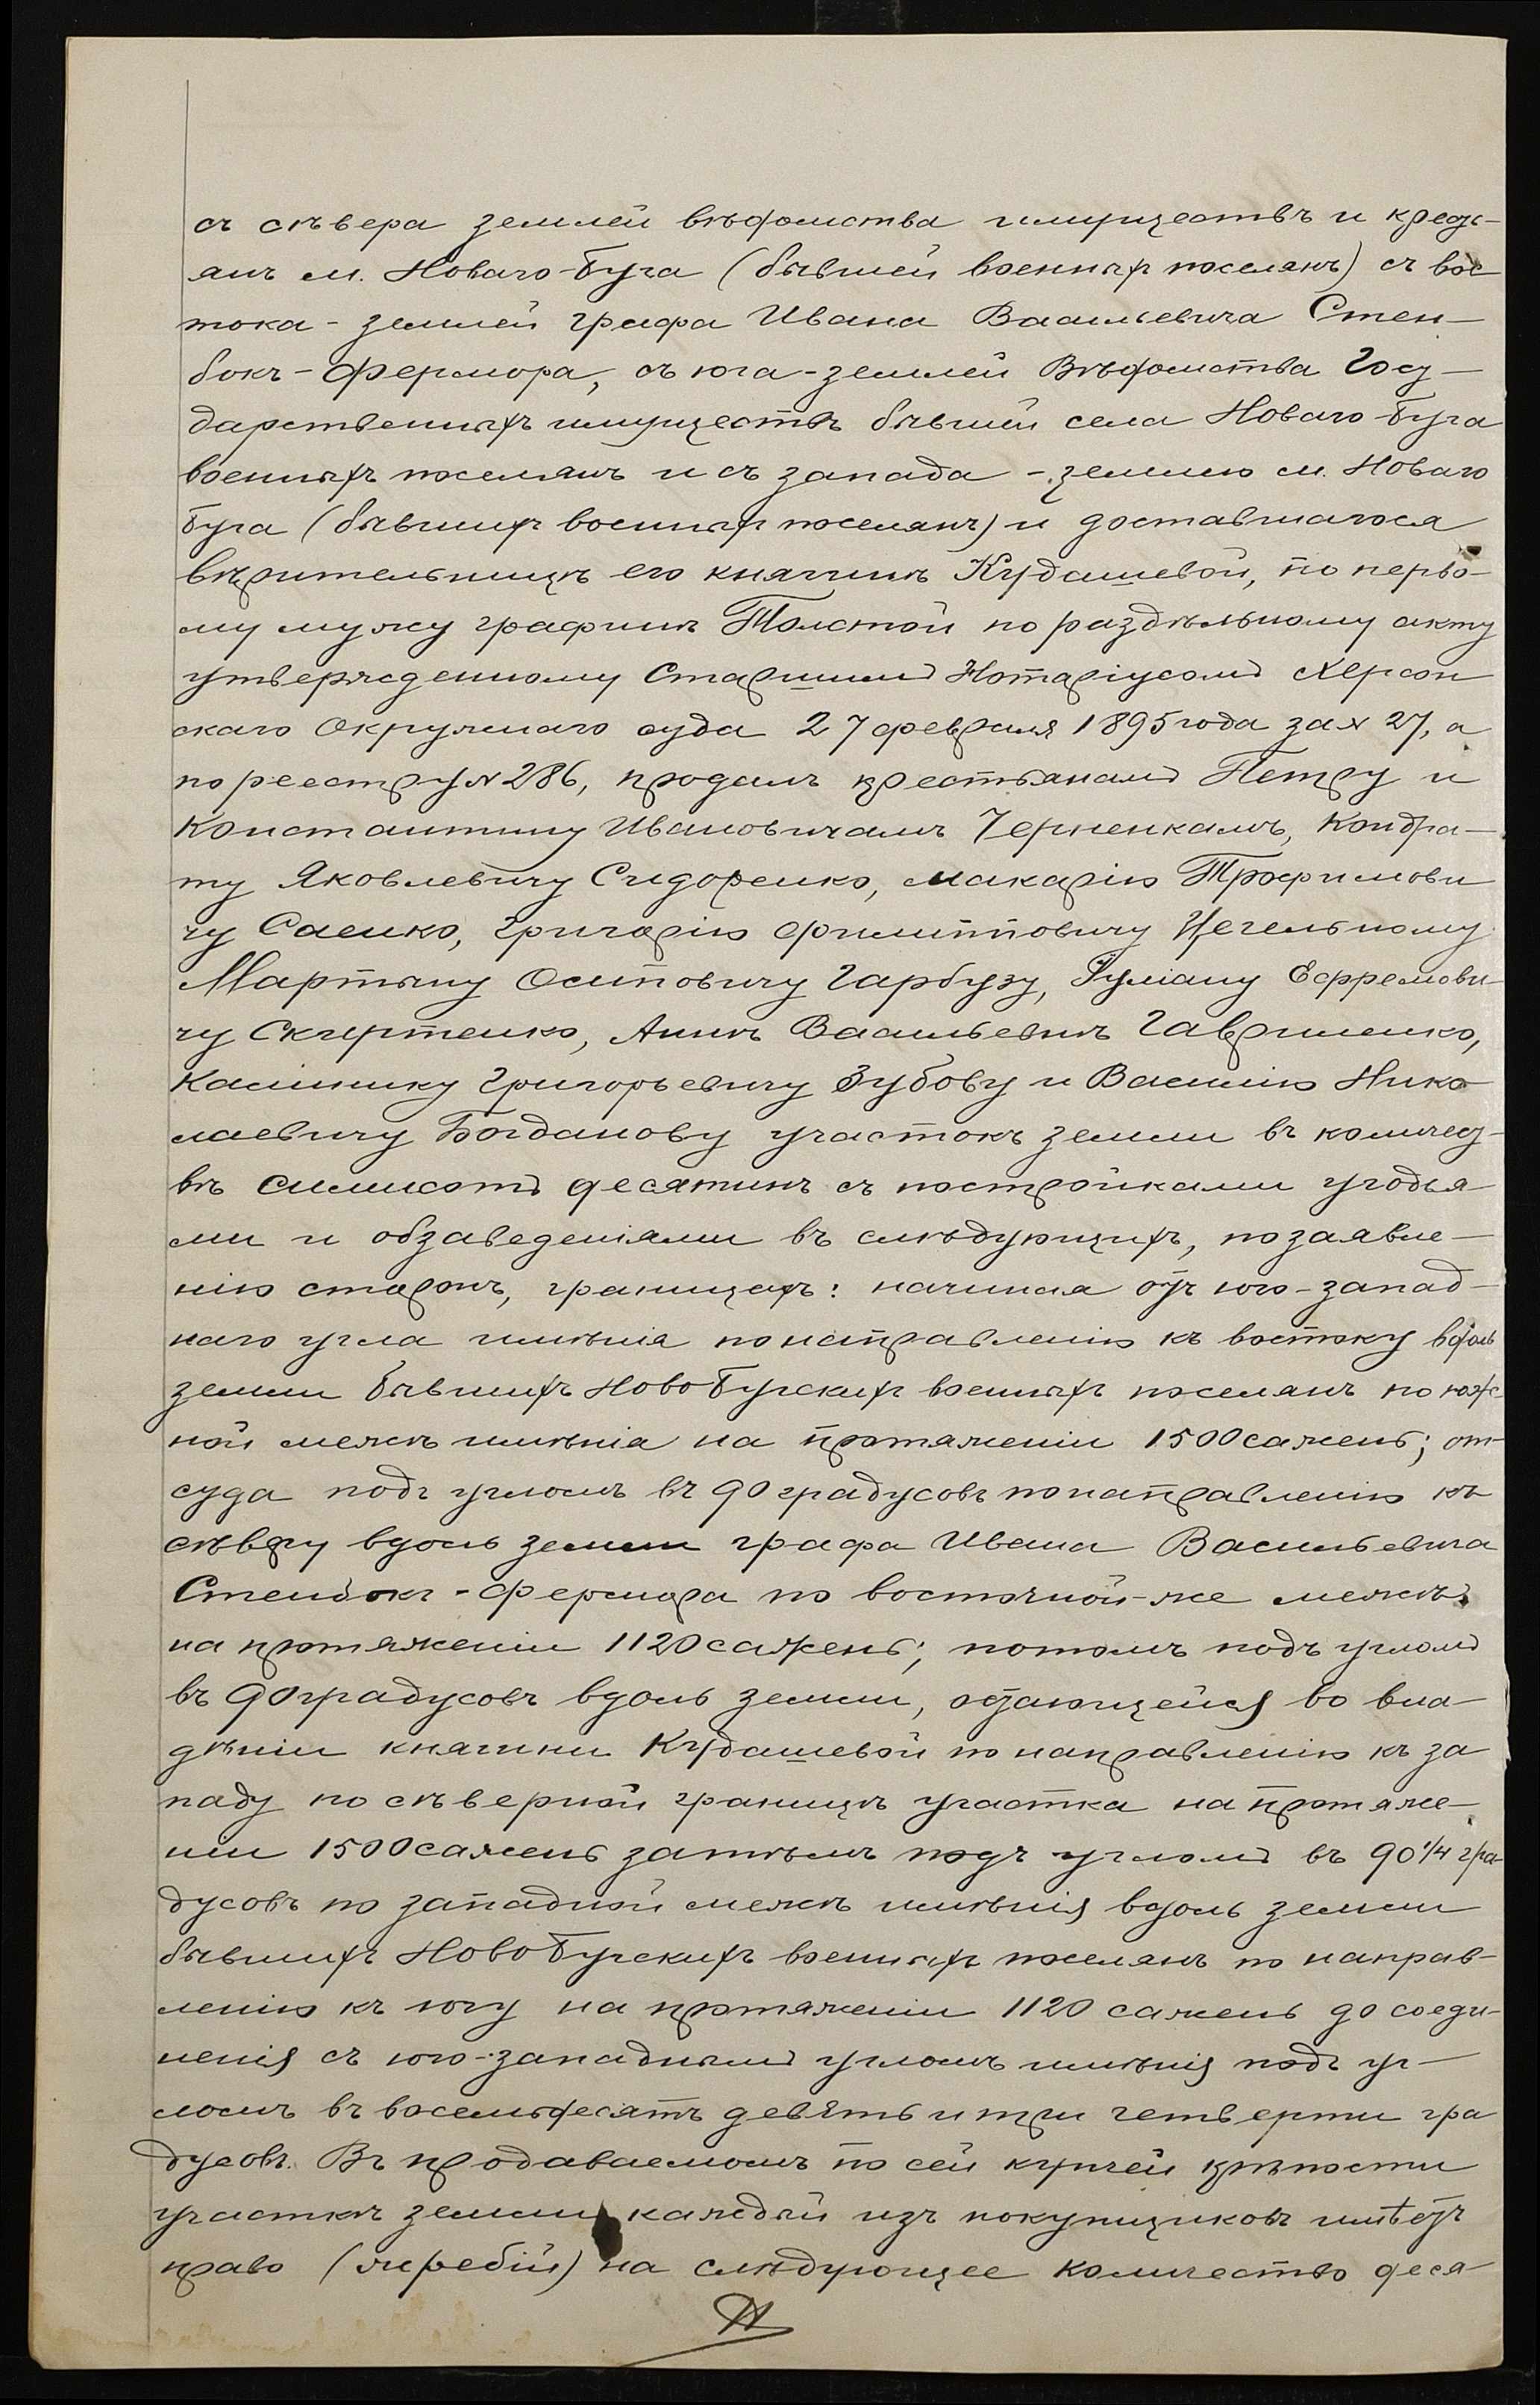 съ сѣвера землей вѣдомства имуществъ и кресть-
янъ м. Новаго-Буга (бывшей военныхъ поселянъ) съ вос
тока - землей графа Ивана Васильевича Стен-
бокъ-Фермора, съ юга - землей Вѣдомства Госу-
дарственныхъ имуществъ бывшей села Новаго-Буга
военныхъ поселянъ и съ запада - землею м. Новаго
Буга (бывшихъ военныхъ поселянъ) и доставшагося
вѣрительницѣ его княгинѣ Кудашевой, по перво-
му мужу графинѣ Толстой по раздѣльному акту
утвержденному Старшимъ Нотаріусомъ Херсон
скаго Окружнаго суда 27 февраля 1895 года за № 27, а
по реестру № 286, продалъ крестьянамъ Петру и
Константину Ивановичамъ Черненкамъ, Кондра-
ту Яковлевичу Сидоренко, Макарію Трофимови
чу Саенко, Григорію Филипповичу Цегельному
Мартыну Осиповичу Гарбузу, Іуліану Ефремови-
чу Скиртенко, Аннѣ Васильевнѣ Гавриленко,
Калиннику Григорьевичу Зубову и Василію Нико-
лаевичу Богданову участокъ земли въ количес-
вѣ семисотъ десятинъ съ постройками угодья-
ми и обзаведеніями въ слѣдующихъ, по заявле-
нію сторонъ, границахъ: начиная отъ юго-запад-
наго угла имѣнія по направленію къ востоку вдоль
земли бывшихъ НовоБугскихъ военныхъ поселянъ по юж-
ной межѣ имѣнія на протяженіи 1500 сажень; от-
суда подъ угломъ въ 90 градусовъ по направленію къ
сѣверу вдоль земли графа Ивана Васильевича
Стенбокъ-Фермора по восточной-же межѣ
на протяженіи 1120 сажень; потомъ подъ угломъ
въ 90 градусовъ вдоль земли, остающейся во вла-
дѣніи княгини Кудашевой по направленію къ за
паду по сѣверной границѣ участка на протяже-
ніи 1500 сажень затѣмъ подъ угломъ въ 90 1/4 гра-
дусовъ по западной межѣ имѣнія вдоль земли
бывшихъ НовоБугскихъ военныхъ поселянъ по направ-
ленію къ югу на протяженіи 1120 сажень до соеди-
ненія съ юго-западнымъ угломъ имѣнія подъ уг-
ломъ въ восемьдесятъ девять и три четверти гра
дусовъ. Въ продаваемомъ по сей купчей крѣпости
участкѣ земли каждый изъ покупщиковъ имѣетъ
право (жребій) на слѣдующее количество деся-